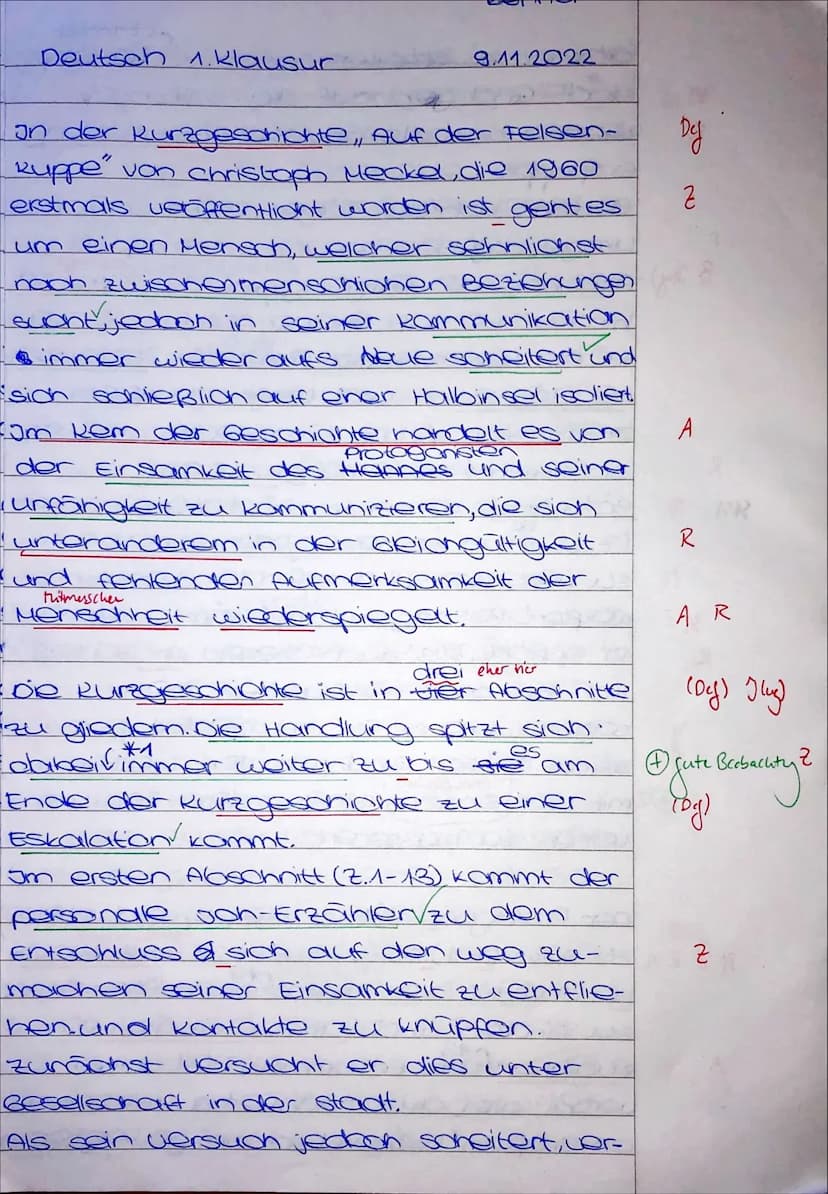 Deutsch 1. Klausur 9.11.2022
In der Kurzgeschichte „Auf der Felsen- Df
kuppe" von Christoph Meckel, die 1960
erstmals veröffentlicht worden ist gent es Z
um einen Mensch, welcher sehnlichst
nach zwischenmenschlichen Beziehungen
sucht, jedoch in seiner Kommunikation
immer wieder aufs Neue scheitert und
sich schließlich auf einer Halbinsel isoliert.
Im Kern der Geschichte handelt es von A
Protagonisten
der Einsamkeit des Hannes und seiner
Unfähigkeit zu kommunizieren, die sich
unteranderem in der Gleichgültigkeit R
und fehlenden Aufmerksamkeit der
Mitmenschen
Menschheit wiederspiegelt. A R
drei eher vier
Die Kurzgeschichte ist in vier Abschnitte (Df)
zu gliedern. Die Handlung spitzt sich
*1 es
dabei immer weiter zu bis sie am + gute Beobachtung Z
Ende der Kurzgeschichte zu einer (Df)
Eskalation kommt.
Im ersten Abschnitt (Z.1-13) kommt der
personale Ich-Erzähler zu dem
Entschluss sich auf den Weg zu- Z
machen seiner Einsamkeit zu entflie-
hen und Kontakte zu knüpfen.
Zunächst versucht er dies unter
Gesellschaft in der Stadt.
Als sein Versuch jedoch scheitert, ver-